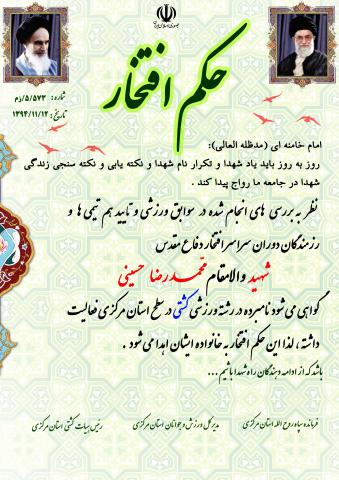 جمهوری اسلامی ایران
حکم افتخار
شماره: ۵/۵۷۳/زم
تاریخ: ۱۳۹۴/۱۱/۱۲
امام خامنه ای (مدظله العالی):
روز به روز باید یاد شهدا و تکرار نام شهدا و نکته یابی و نکته سنجی زندگی
شهدا در جامعه ما رواج پیدا کند .
نظر به بررسی های انجام شده در سوابق ورزشی و تایید هم تیمی ها و
رزمندگان دوران سراسر افتخار دفاع مقدس
شهید والامقام محمدرضا حسینی
گواهی می شود نامبرده در رشته ورزشی کشتی در سطح استان مرکزی فعالیت
داشته ، لذا این حکم افتخار به خانواده ایشان اهدا می شود .
باشد که از ادامه دهندگان راه شهدا باشیم...
فرمانده سپاه روح الله استان مرکزی
مدیر کل ورزش و جوانان استان مرکزی
رئیس هیات کشتی استان مرکزی